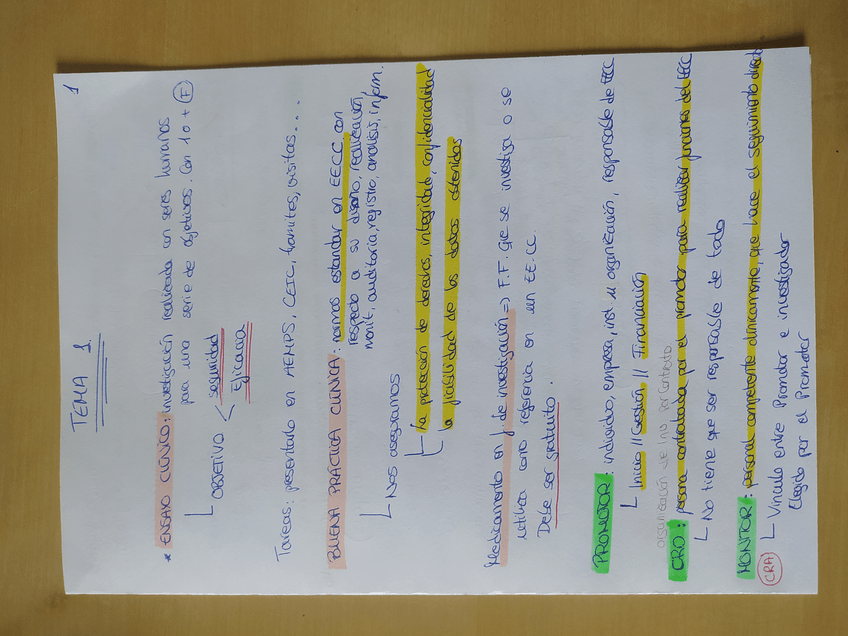 1
TEMA 1.
* ENSAYO CLÍNICO: investigación realizada en seres humanos
para una serie de objetivos. Con 1 o + (F)
OBJETIVO < seguridad
Eficacia
Tareas: presentarlo en AEMPS, CEIC, tramites, visitas...
BUENA PRÁCTICA CLÍNICA: normas estandar en EECC con
respecto a su diseño, realización,
monit., auditoria, registro, análisis, inform.
Nos aseguramos
La protección de derechos, integridad, confidencialidad
la fiabilidad de los datos obtenidos
Medicamento en f. de investigación => F.F. que se investiga o se
utiliza como referencia en un EE.CC.
Debe ser gratuito.
PROMOTOR: individuo, empresa, inst. u organización, responsable de EECC
Inicio // Gestión // Financiación
organización de inv por contrato
CRO: persona contratada por el promotor para realizar funciones del EECC
No tiene que ser responsable de todo
MONITOR: personal competente clínicamente, que hace el seguimiento directo
(CRA) Vínculo entre Promotor e investigador
Elegido por el Promotor